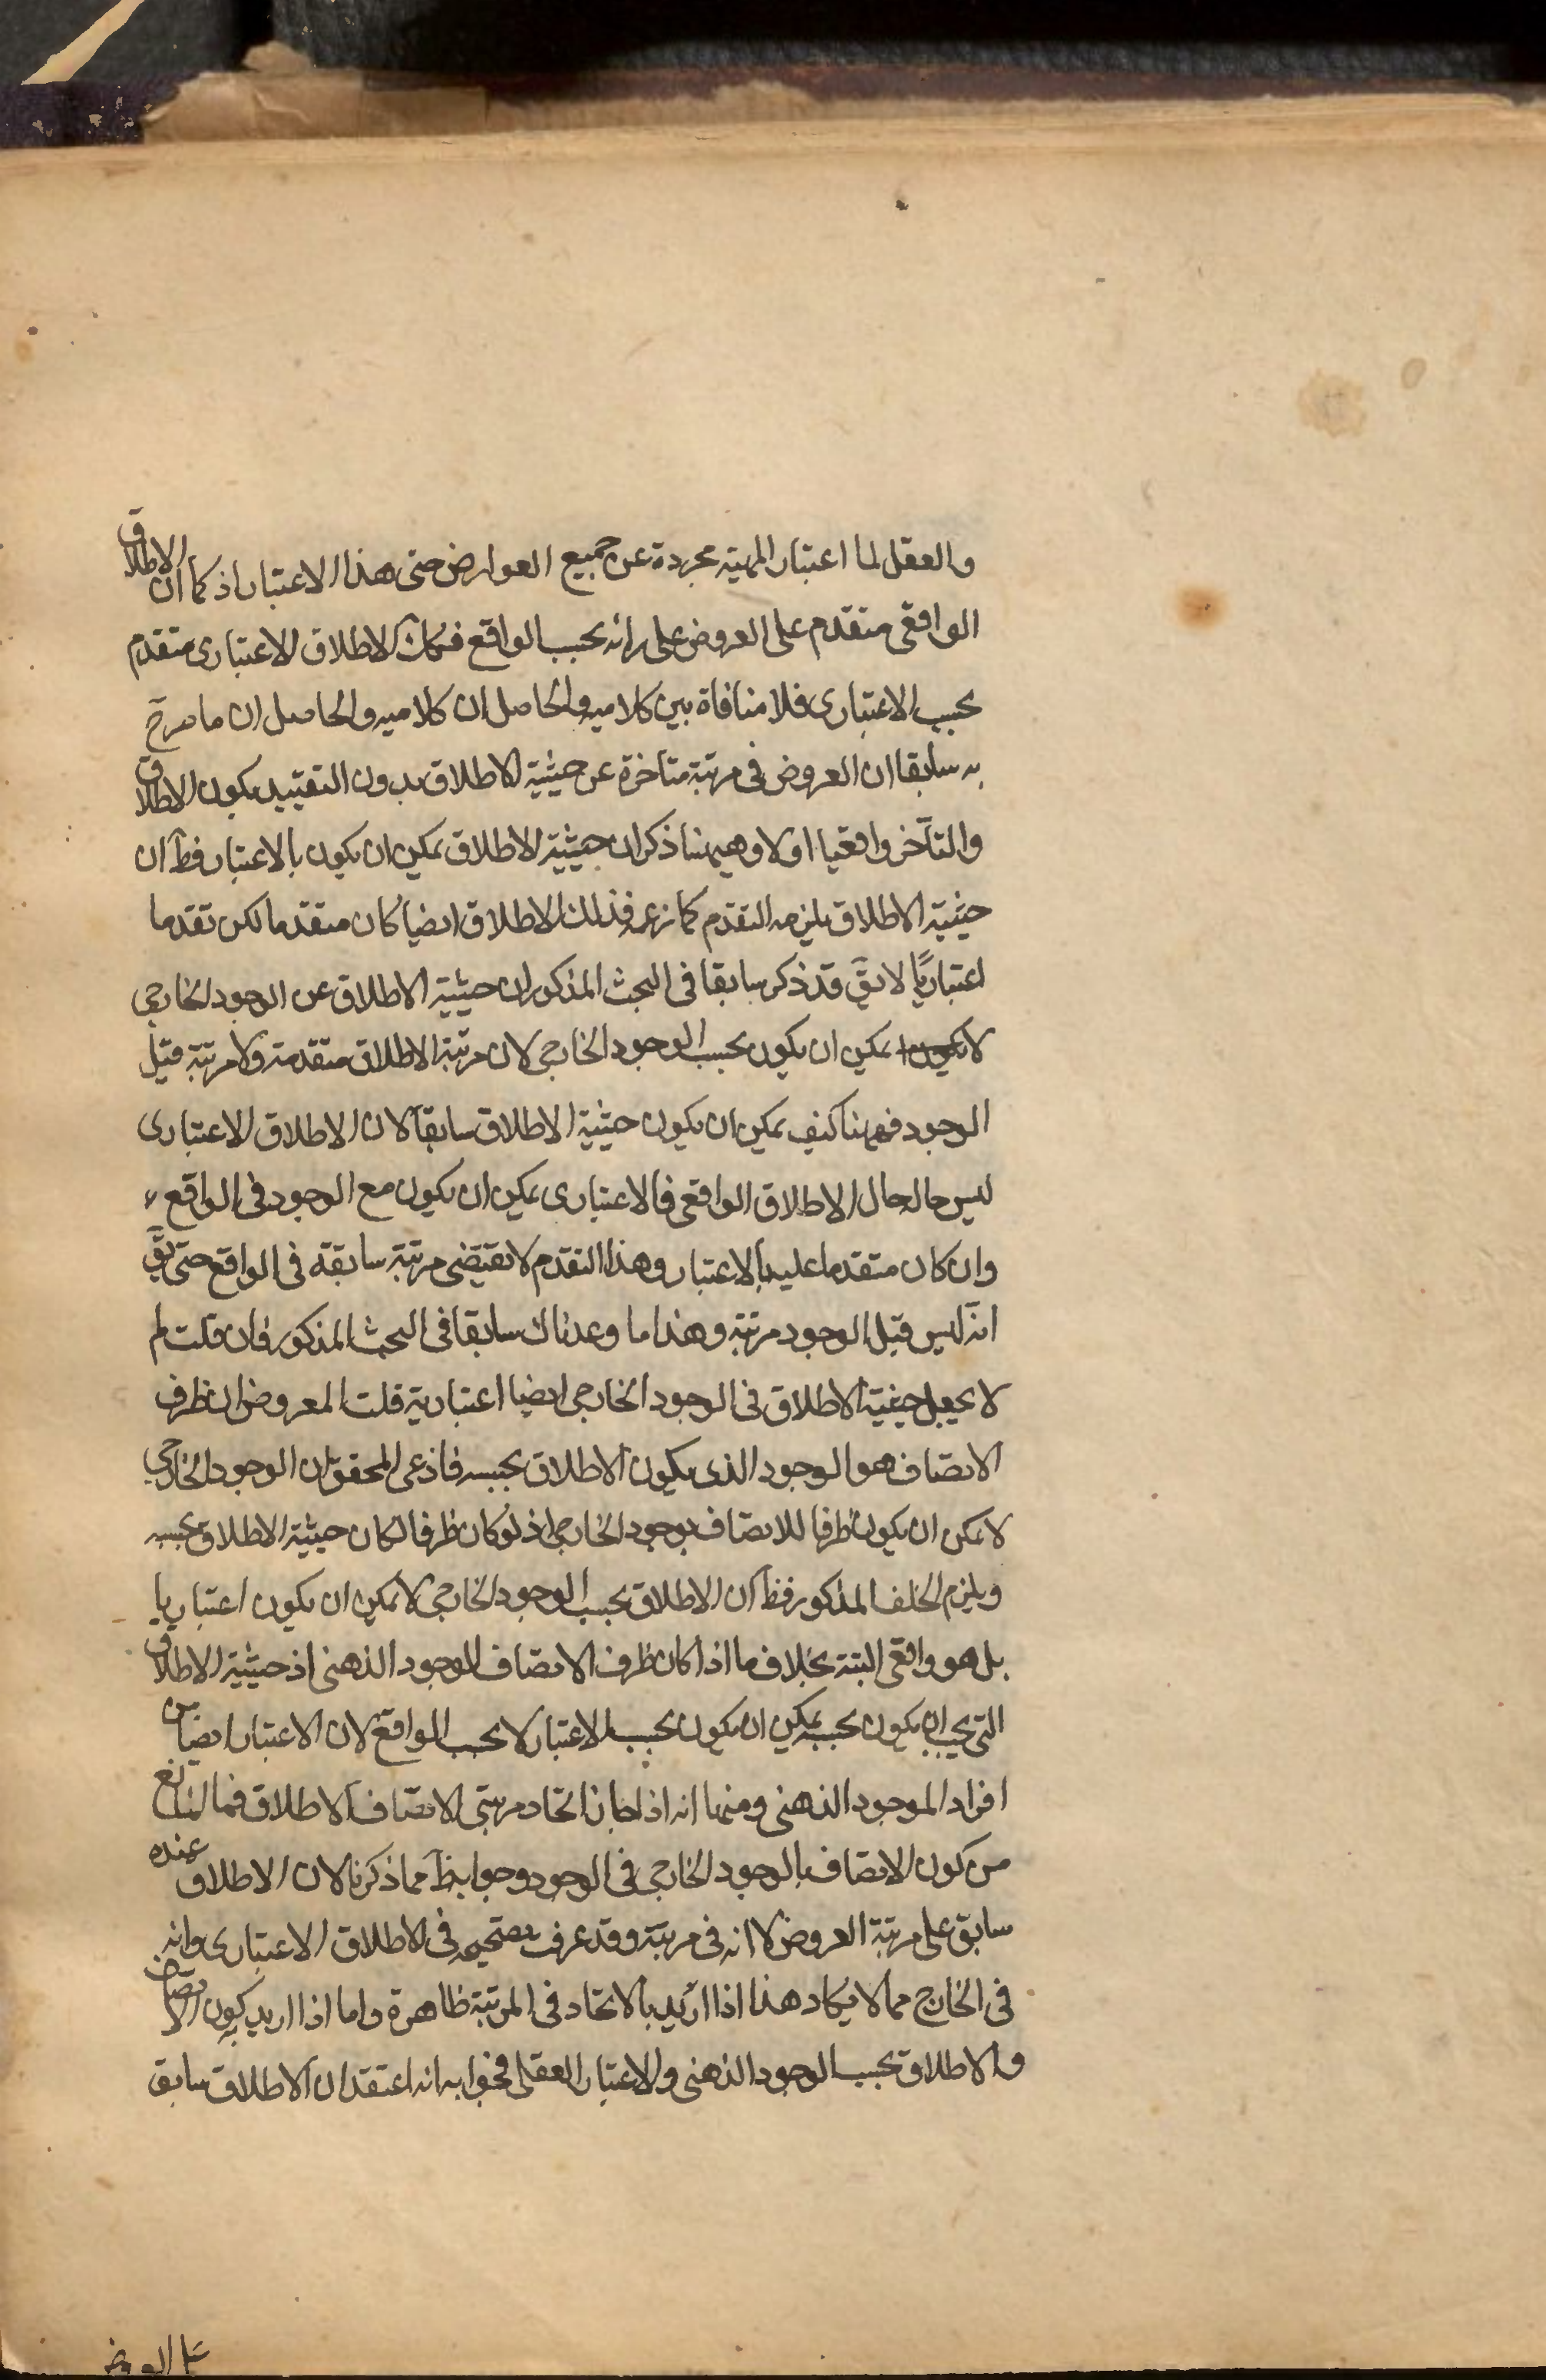 والعقل لما اعتبار المهية مجردة عن جميع العوارض حتى هذا الاعتبار اذ كما ان الاطلاق
الواقعى متقدم على العروض على رائه بحسب الواقع فكك الاطلاق الاعتبارى متقدم
بحسب الاعتبارى فلا منافاة بين كلاميه والحاصل ان كلاميه والحاصل ان ما صرح
به سابقا ان العروض فى مرتبة متاخرة عن حيثية الاطلاق بدون التقييد يكون الاطلاق
والتأخر واقعيا اولا وهيهنا ذكر ان حيثية الاطلاق يمكن ان يكون بالاعتبار فظ ان
حيثية الاطلاق يلزمه التقدم كما زعمه فذلك الاطلاق ايضا كان متقدما لكن تقدما
اعتباريا لا يق قد ذكر سابقا فى البحث المذكور ان حيثية الاطلاق عن الوجود الخارجى
لا يمكن ان يكون بحسب الوجود الخارجى لان مرتبة الاطلاق متقدمة ولا مرتبة قبل
الوجود فههنا كيف يمكن ان يكون حيثية الاطلاق سابقا لان الاطلاق الاعتبارى
ليس حاله حال الاطلاق الواقعى فالاعتبارى يمكن ان يكون مع الوجود فى الواقع
وان كان متقدما عليه بالاعتبار وهذا التقدم لا يقتضى مرتبة سابقة فى الواقع حتى يق
انه ليس قبل الوجود مرتبة وهذا ما وعدناك سابقا فى البحث المذكور فان قلت لم
لا يجعل حيثية الاطلاق فى الوجود الخارجى ايضا اعتبارية قلت المعروض ان ظرف
الاتصاف هو الوجود الذى يكون الاطلاق بحسبه فاذعى المحقق بان الوجود الخارجى
لا يمكن ان يكون ظرفا للاتصاف بوجود الخارجى اذ لو كان ظرفا لكان حيثية الاطلاق بحسبه
ويلزم الخلف المذكور فظ ان الاطلاق بحسب الوجود الخارجى لا يمكن ان يكون اعتباريا
بل هو واقعى البتة بخلاف ما اذا كان ظرف الاتصاف الوجود الذهنى اذ حيثية الاطلاق
التى يجب ان يكون بحسبه يمكن ان يكون بحسب الاعتبار لا بحسب الواقع لان الاعتبار ايضا من
افراد الموجود الذهنى ومنها انه اذا جاز اتحاد مرتبتى الاتصاف والاطلاق فما المانع
من كون الاتصاف بالوجود الخارجى فى الوجود وجوابه ظ مما ذكرنا لان الاطلاق عنده
سابق على مرتبة العروض لا انه فى مرتبة وقد عرف تصحيحه فى الاطلاق الاعتبارى وانه
فى الخارج مما لا يكاد هذا اذا اريد بالاتحاد فى المرتبة ظاهرة واما اذا اريد به كون الاتصاف
والاطلاق بحسب الوجود الذهنى والاعتبار العقلى فجوابه انه اعتقد ان الاطلاق سابق